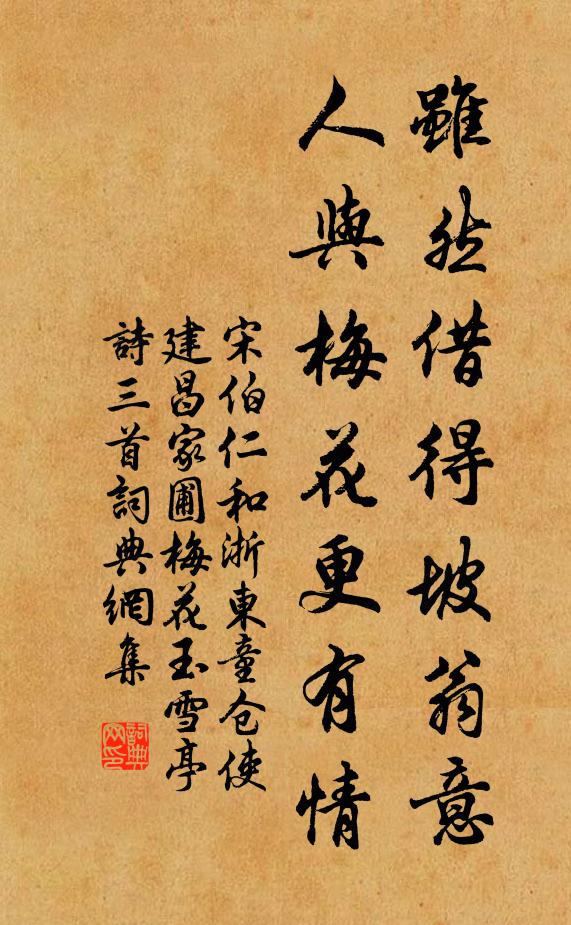 雖然借得坡翁意
人與梅花更有情
宋伯仁和浙東童仓使
建昌家圃梅花玉雪亭
詩三首詞典網集
詞典網印